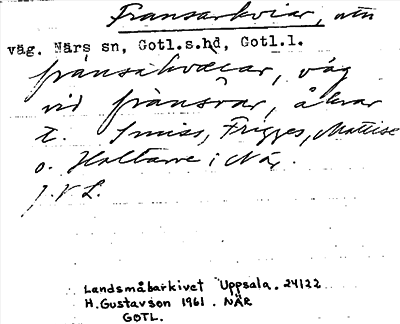 Fransarkviar, utn
väg. Närs sn, Gotl.s.hd, Gotl.l.
väg
vid fränsrar, åkrar
t. Smiss, Frigges, Mattise
o. Haltarve i När.
J.V L.
Landsmåbarkivet Uppsala. 24122
H. Gustavson 1961. NÄR
GOTL.